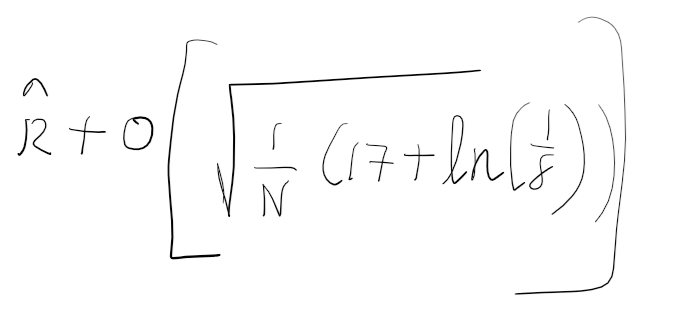 R̂ + O[√(1/N (17 + ln(1/8)))]